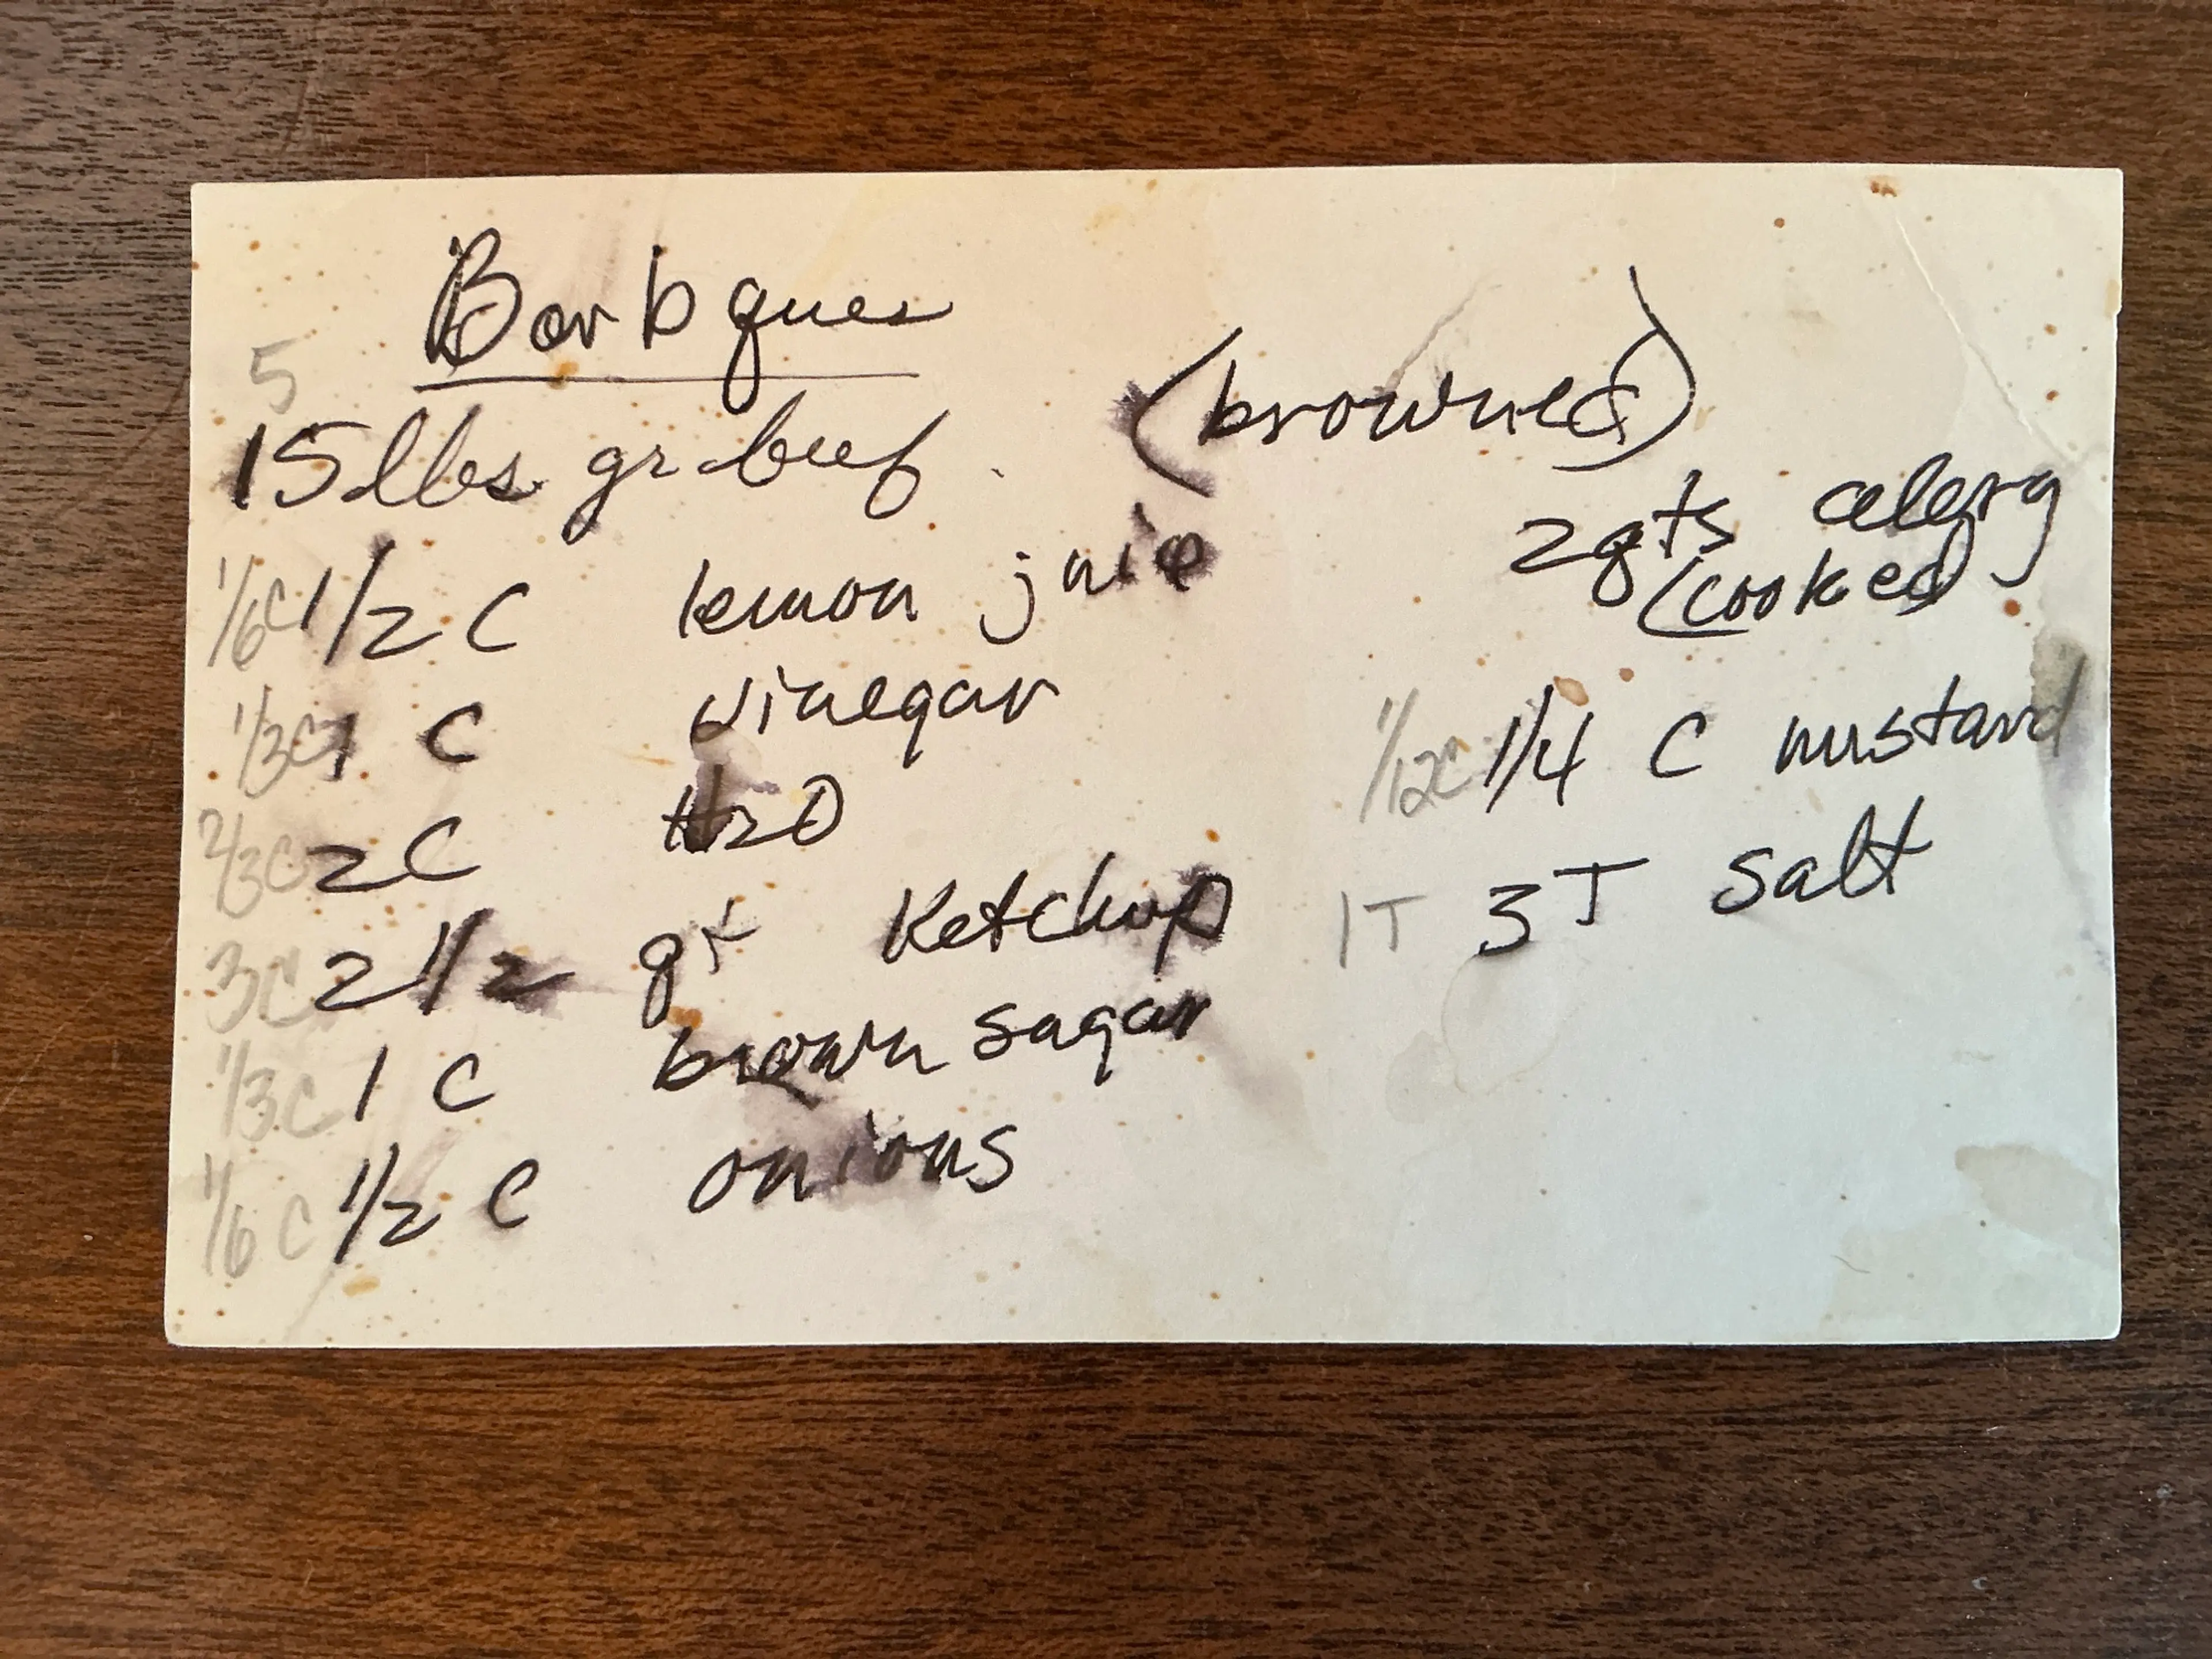 Barbques
5
15 lbs gr beef. (browned)
1/6C 1/2 C lemon juice
1/3C 1 C vinegar
2/3C 2C H2O
3C 2 1/2 qt Ketchup
1/3C 1 C brown sugar
1/6 C 1/2 C onions
2qts celery
(cooked)
1/12C 1/4 C mustard
1T 3T salt